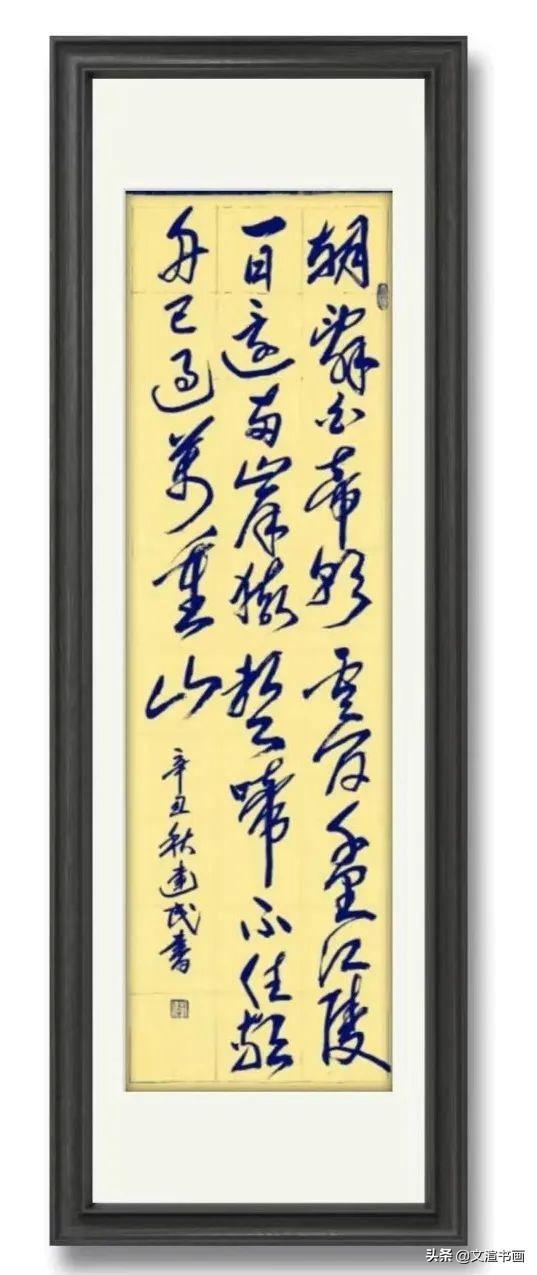 朝辭白帝彩雲間千里江陵
一日還兩岸猿聲啼不住輕
舟已過萬重山
辛丑秋建民書
头条 @文渲书画